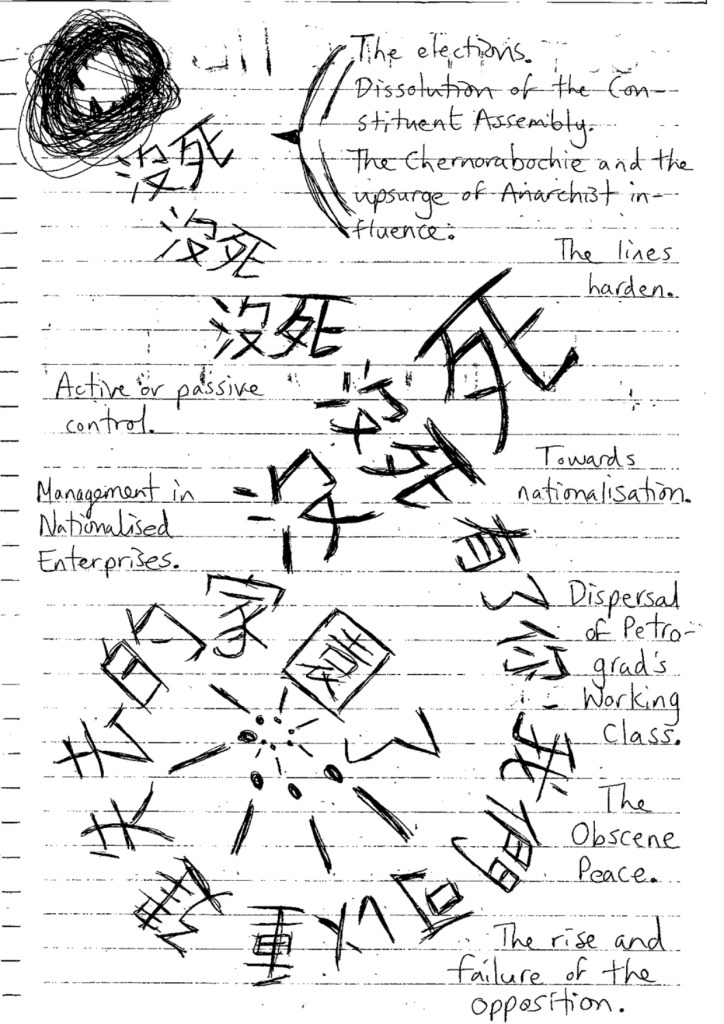 The elections.
Dissolution of the Con-
stituent Assembly.
The Chernorabochie and the
upsurge of Anarchist in-
fluence.
没死
没死
没死
没死
The lines
harden.
死
Active or passive
control.
没
Towards
nationalisation.
Management in
Nationalised
Enterprises.
有了你我們可以重建失去的家園了
Dispersal
of Petro-
grad's
Working
Class.
The
Obscene
Peace.
The rise and
failure of the
opposition.